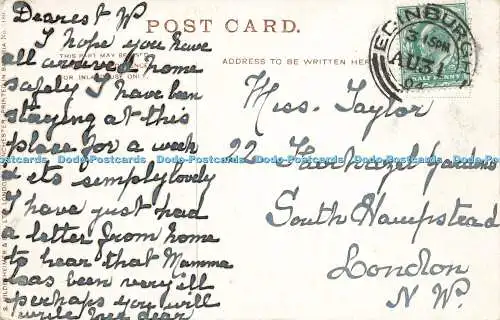 Dearest W
I hope you have
all arrived home
safely I have been
staying at this
place for a week
& its simply lovely
I have just had
a letter from home
to hear that Mamma
has been very ill
perhaps you will
write her dear
POST CARD.
THIS PART MAY BE USED
FOR INLAND USE ONLY.
ADDRESS TO BE WRITTEN HERE
EDINBURGH
AU 31
04
HALFPENNY
Miss Taylor
22 Gardens
South Hampstead
London
N W.
Dodo-Postcards Dodo-Postcards Dodo-Postcards Dodo-Postcards Dodo-Postcards Dodo-Postcards